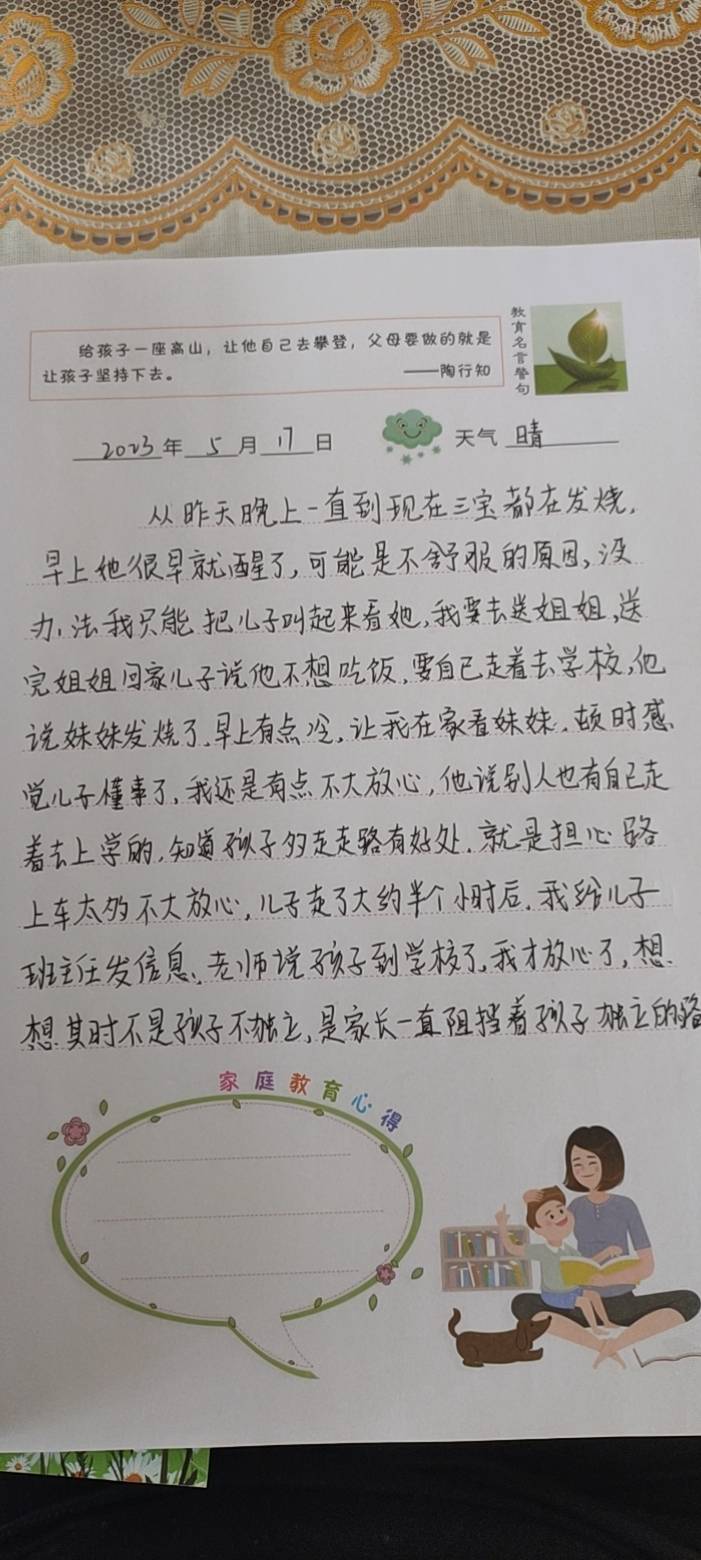 教育名言警句
给孩子一座高山，让他自己去攀登，父母要做的就是
让孩子坚持下去。 ——陶行知
2023年 5 月 17 日 天气 晴
从昨天晚上一直到现在三宝都在发烧，
早上她很早就醒了，可能是不舒服的原因，没
办，法我只能把儿子叫起来看她，我要去送姐姐，送
完姐姐回家儿子说他不想吃饭，要自己走着去学校，他
说妹妹发烧了，早上有点冷，让我在家看妹妹，顿时感
觉儿子懂事了，我还是有点不大放心，他说别人也有自己走
着去上学的，知道孩子多走走路有好处，就是担心路
上车太多不大放心，儿子走了大约半个小时后，我给儿子
班主任发信息，老师说孩子到学校了，我才放心了，想
想其时不是孩子不独立，是家长一直阻挡着孩子独立的路
家庭教育心得